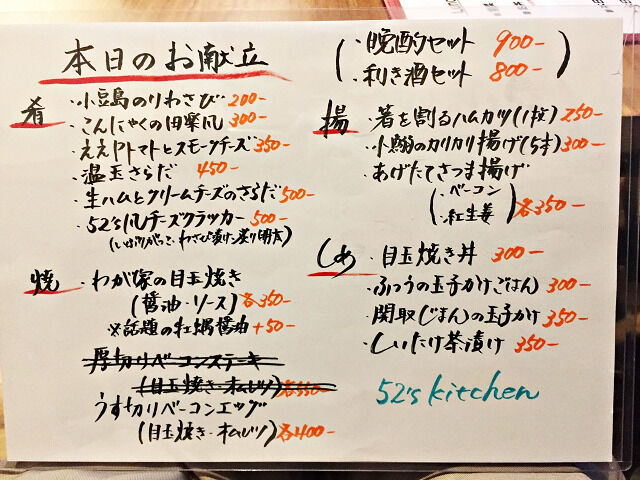 本日のお献立
(・晩酌セット 900-
・利き酒セット 800-)
肴
・小豆島のりわさび 200-
・こんにゃくの田楽風 300-
・ええトマトとスモークチーズ 350-
・温玉さらだ 450-
・生ハムとクリームチーズのさらだ 500-
・52's風チーズクラッカー 500-
(いぶりがっこ・わさび漬け・炙り明太)
焼
・わが家の目玉焼き
(醤油・ソース) 各350-
※話題の牡蠣醤油 +50-
厚切りベーコンステーキ
(目玉焼き・オムレツ) 各550-
うす切りベーコンエッグ
(目玉焼き・オムレツ) 各400-
揚
・箸を割るハムカツ(1枚) 250-
・小鰯のカリカリ揚げ(5本) 300-
・あげたてさつま揚げ
(・ベーコン
・紅生姜) 各350-
しめ
・目玉焼き丼 300-
・ふつうの玉子かけごはん 300-
・関取(じまん)の玉子かけ 350-
・しいたけ茶漬け 350-
52's kitchen